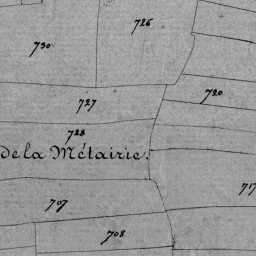 726
730
720
727
728
de la Métairie.
707
708